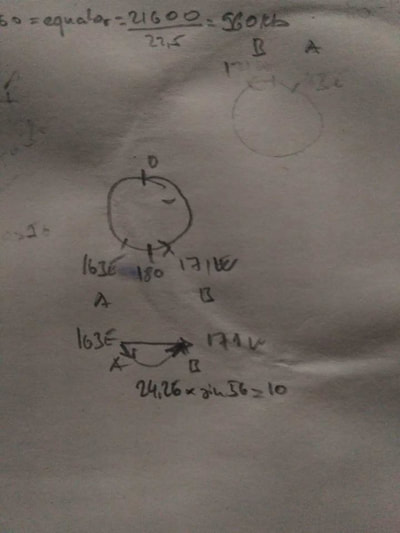 60 = equator = 21600 / 22,5 = 960 kts
B A
0
163E 180 171W
A B
163E 171W
A B
24,26 x sin 56 = 10